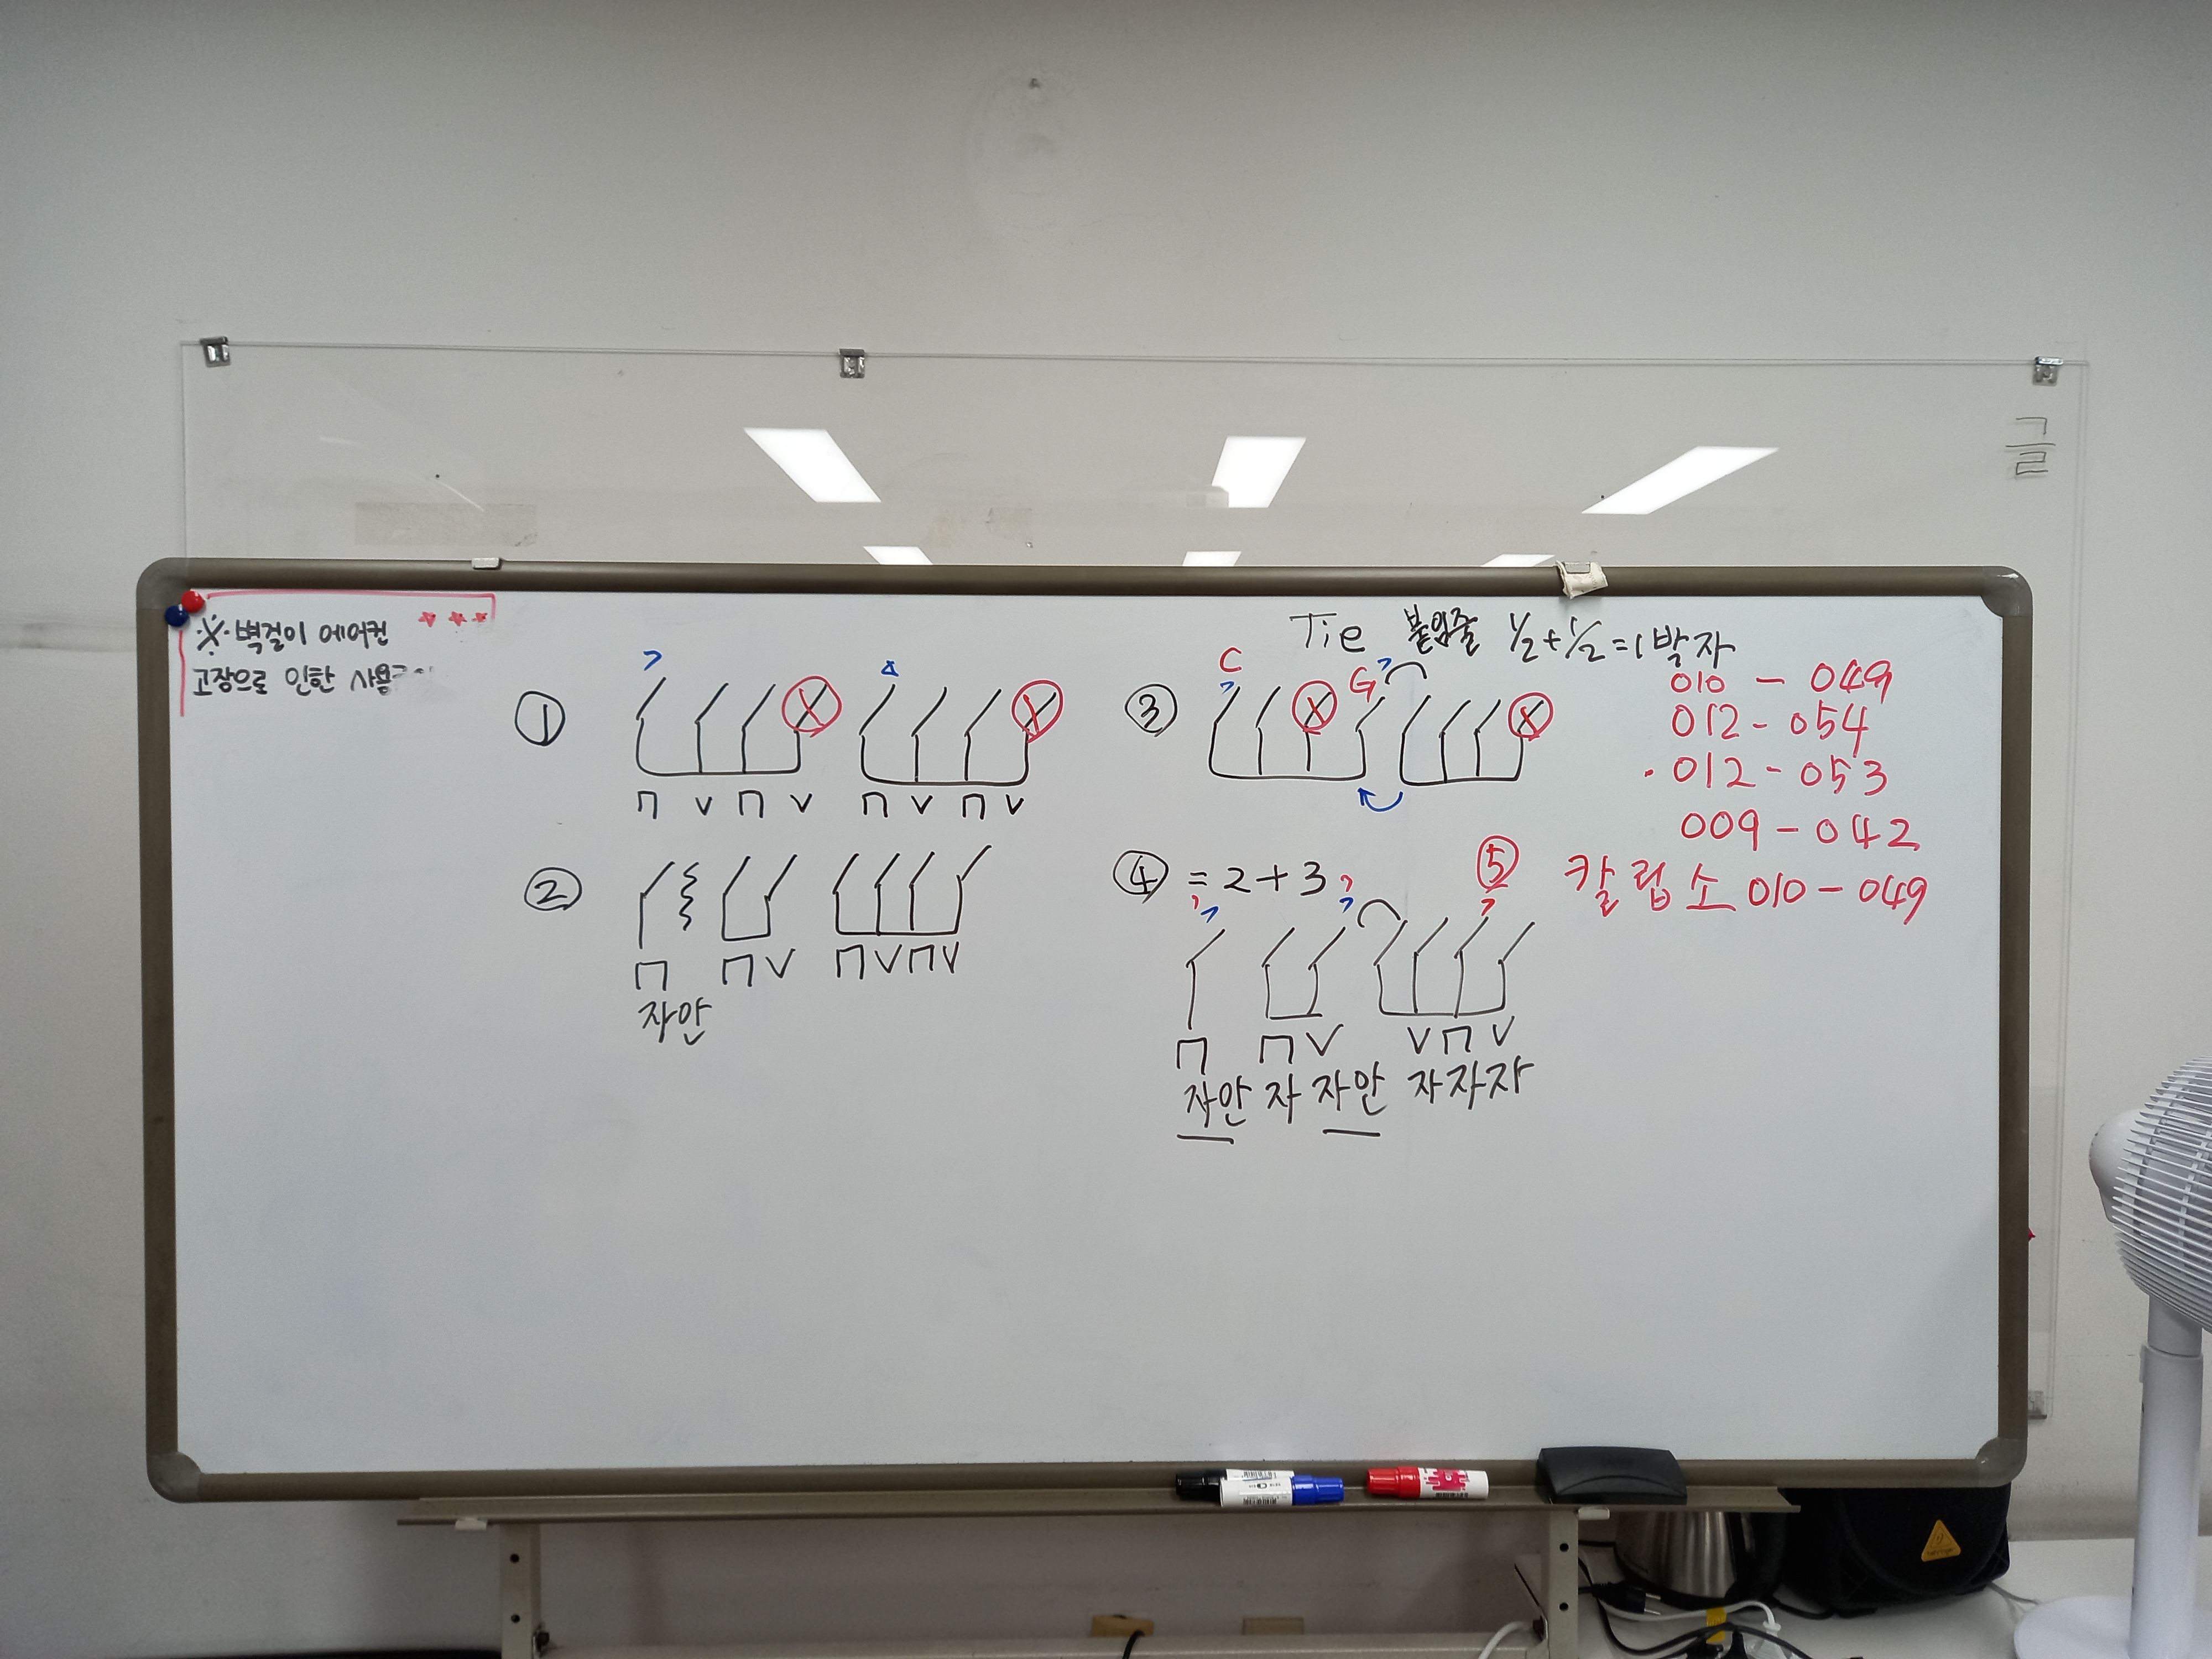 ※ 벽걸이 에어컨
고장으로 인한
Tie 붙임줄 1/2+1/2=1박자
①
п v п v п v п v
②
п п v п v п v
자안
③
C G
④ = 2+3
⑤
п п v v п v
자안 자 자안 자자자
010 - 049
012 - 054
· 012 - 053
009 - 042
칼립소 010 - 049
글